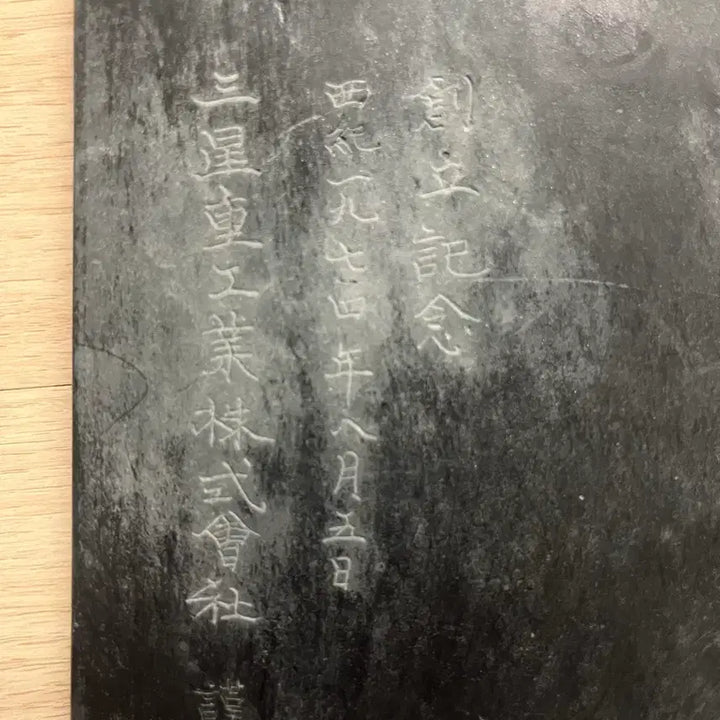 創立記念
西紀一九七四年八月五日
三星重工業株式會社 謹